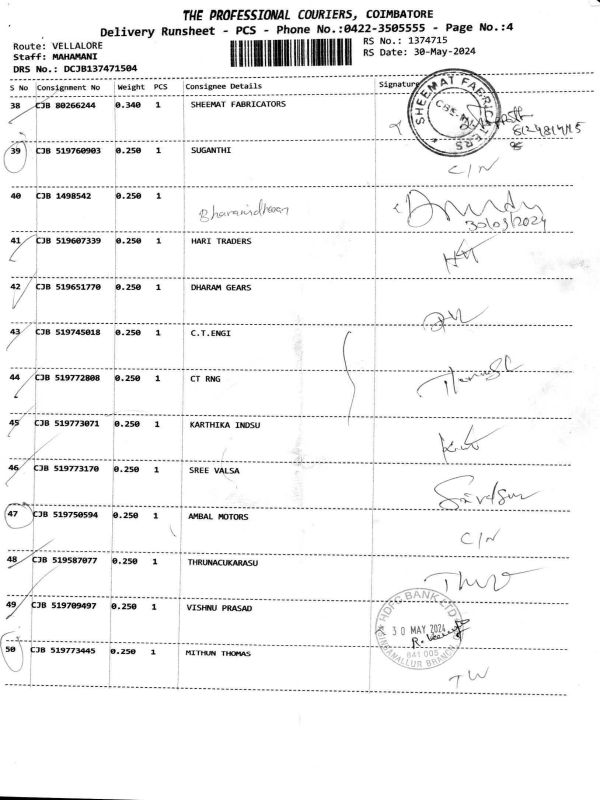 THE PROFESSIONAL COURIERS, COIMBATORE
Delivery Runsheet - PCS - Phone No.:0422-3505555 - Page No.:4
Route: VELLALORE
Staff: MAHAMANI
DRS No.: DCJB137471504
RS No.: 1374715
RS Date: 30-May-2024
S No Consignment No Weight PCS Consignee Details Signature
38 CJB 80266244 0.340 1 SHEEMAT FABRICATORS
SHEEMAT FABRICATERS
39 CJB 519760903 0.250 1 SUGANTHI C/N
40 CJB 1498542 0.250 1
30/05/2024
41 CJB 519607339 0.250 1 HARI TRADERS
42 CJB 519651770 0.250 1 DHARAM GEARS
43 CJB 519745018 0.250 1 C.T.ENGI
44 CJB 519772808 0.250 1 CT RNG
45 CJB 519773071 0.250 1 KARTHIKA INDSU
46 CJB 519773170 0.250 1 SREE VALSA
47 CJB 519750594 0.250 1 AMBAL MOTORS C/N
48 CJB 519587077 0.250 1 THRUNACUKARASU
49 CJB 519709497 0.250 1 VISHNU PRASAD
HDFC BANK LTD
30 MAY 2024
641 005
SINGANALLUR BRANCH
50 CJB 519773445 0.250 1 MITHUN THOMAS